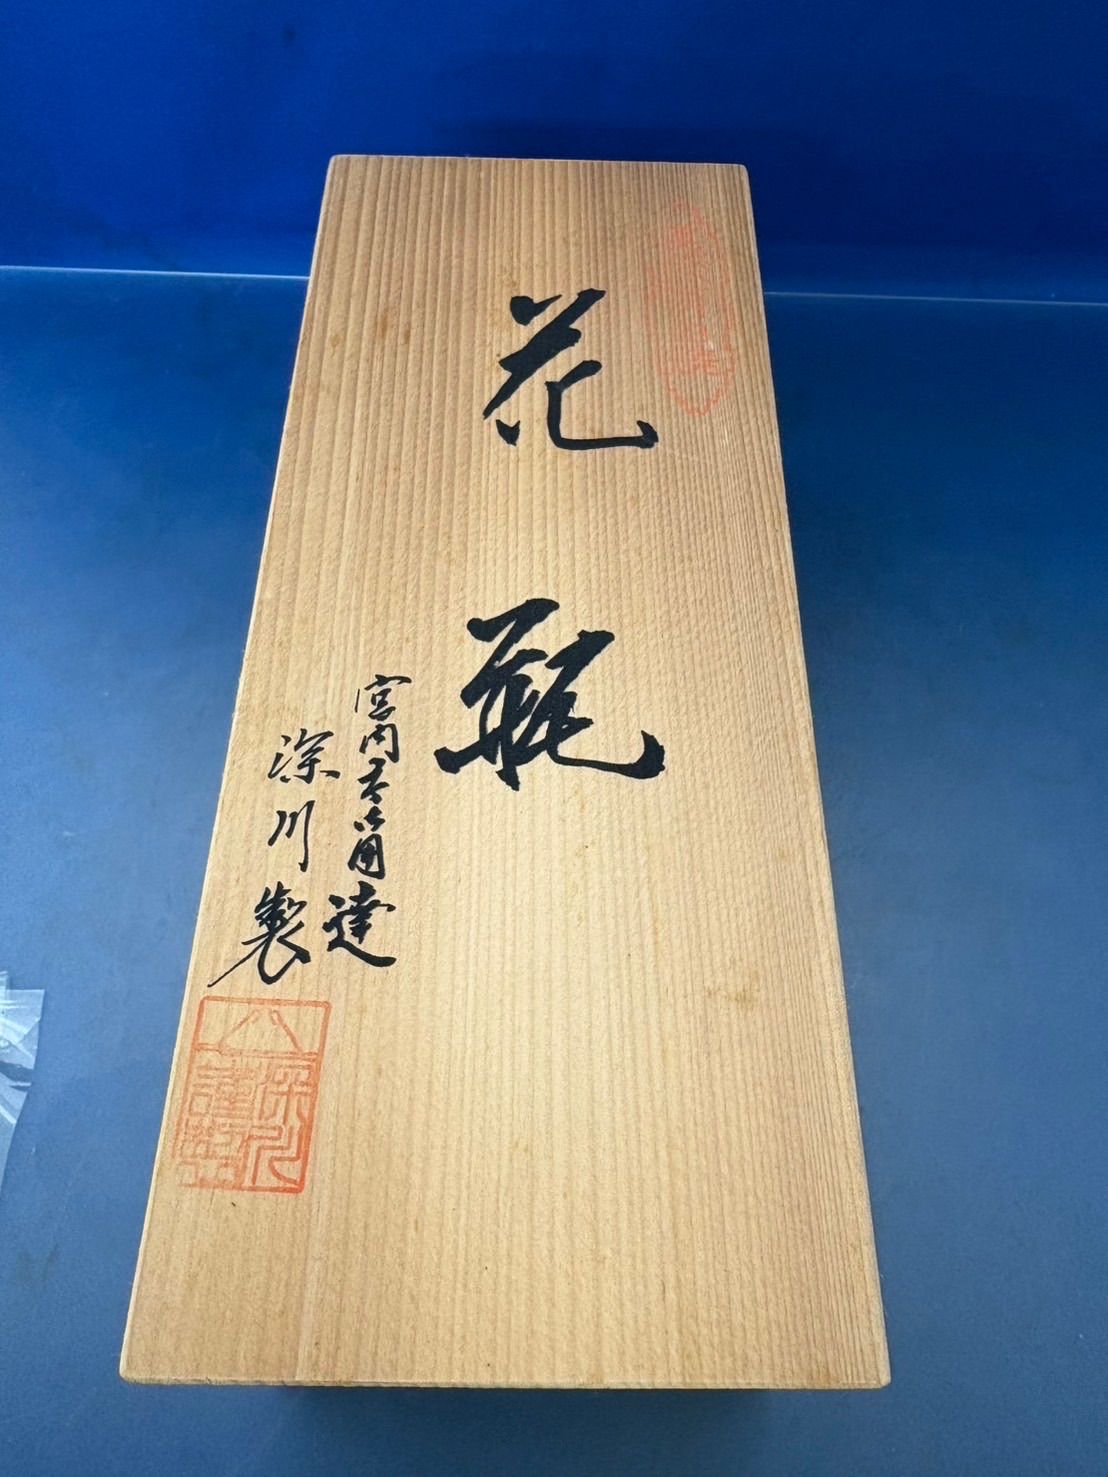 花瓶
宮内庁御用達
深川製
深川
謹製